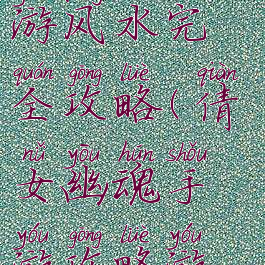 游风水完
quán gōng lüè qiàn
全攻略(倩
nǚ yōu hún shǒu
女幽魂手
yóu gōng lüè yóu
游攻略游